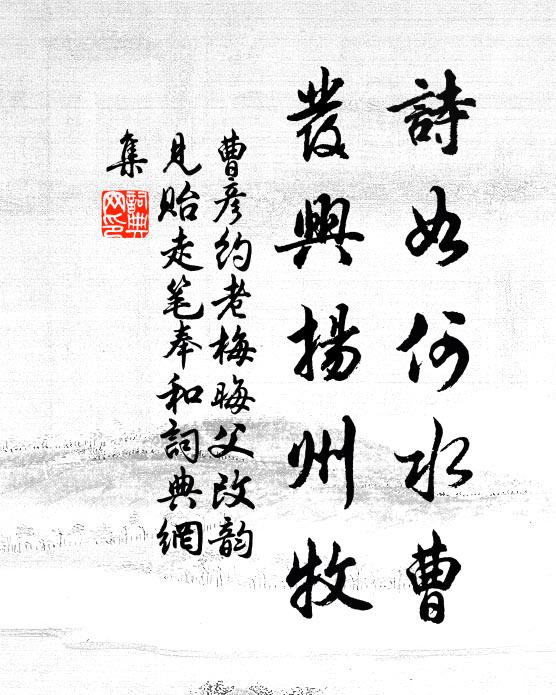 詩如何水曹
發興揚州牧
曹彦約老梅晦父改韵
見貽走笔奉和詞典網
集
詞典
网印